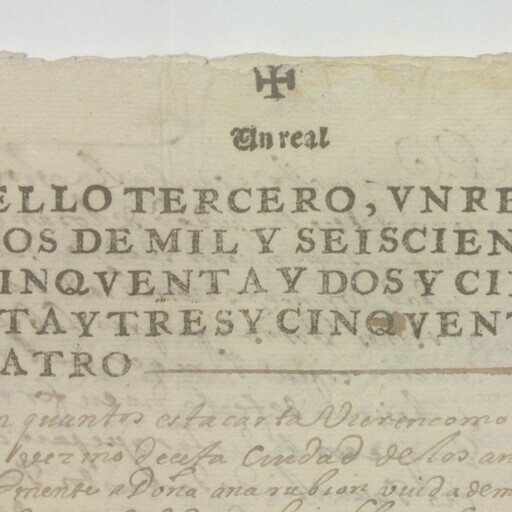 Un real
ELLO TERCERO, VN RE
OS DE MIL Y SEISCIEN
INQVENTA Y DOS Y CI
TA Y TRES Y CINQVENT
ATRO
n quantos esta carta Vieren como
vezino de esta Ciudad de los
mente a Doña ana rubion viuda de